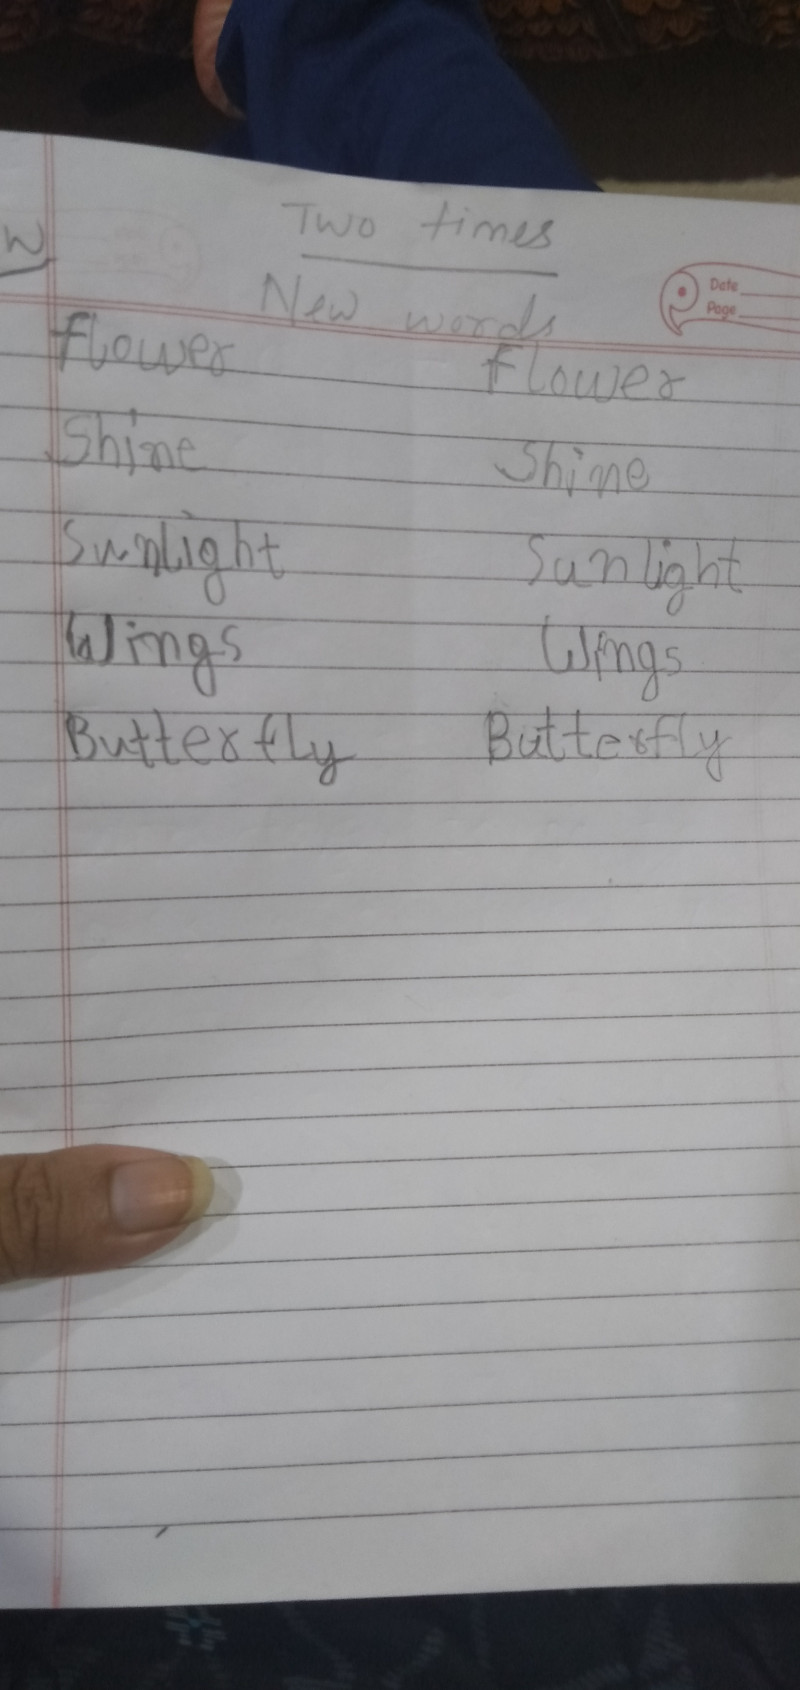 W
Two times
New words
Date
Page
flower flower
Shine Shine
Sunlight Sunlight
Wings Wings
Butterfly Butterfly